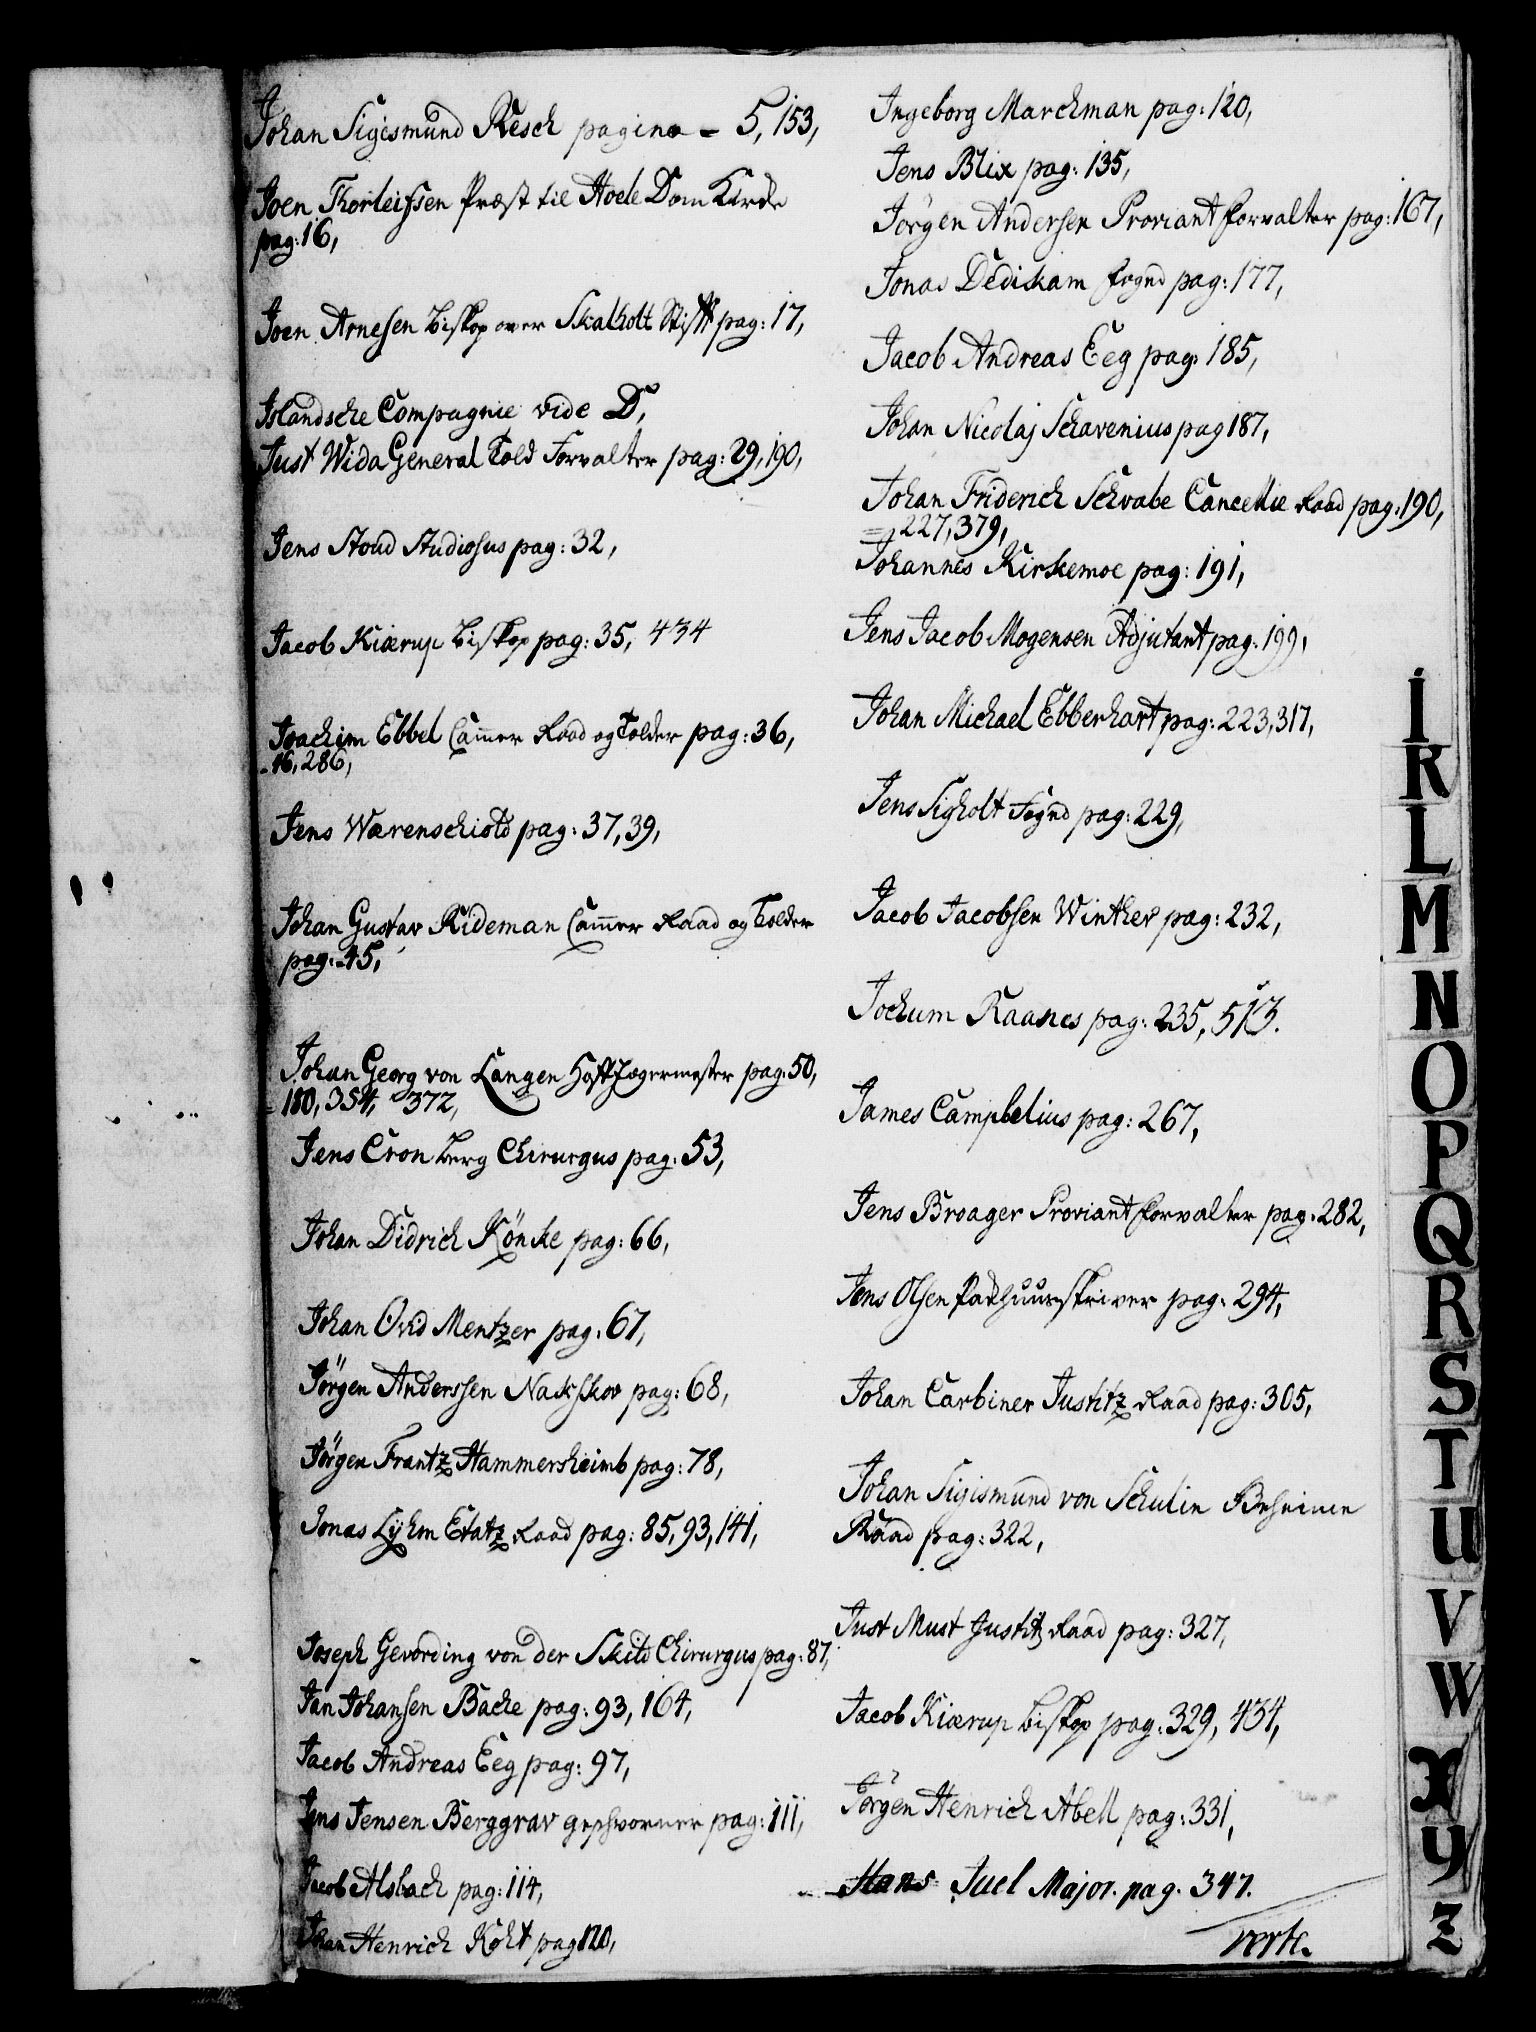 Johan Sigismund Resch pagina - 5, 153,
Joen Thorleifsen Præst til Hoele Dom Kirche
pag: 16,
Joen Arnesen Biskop over Skalholt Stift pag: 17,
Islandsche Compagnie vide D,
Just Wida General Told Forvalter pag: 29, 190,
Jens Stoud Studiosus pag: 32,
Jacob Kiærup Biskop pag: 35, 434
Joachim Ebbel Cammer Raad og Tolder pag: 36,
46, 286,
Jens Wærenschiold pag: 37, 39,
Johan Gustav Rideman Cammer Raad og Tolder
pag: 45,
Johan Georg von Langen Hoff Jægermester pag: 50,
180, 354, 372,
Jens Cron berg Chirurgus pag: 53,
Johan Didrich Köncke pag: 66,
Johan Ovid Mentzer pag: 67,
Jörgen Anderssen Nakskov pag: 68,
Jörgen Frantz Hammersheimb pag: 78,
Jonas Lyhm Etatz Raad pag: 85, 93, 141,
Joseph Gevording von der Skild Chirurgus pag: 87,
Jan Johansen Bache pag: 93, 164,
Jacob Andreas Eeg pag: 97,
Jens Jensen Berggrav geschvorner pag: 111,
Jacob Alsbach pag: 114,
Johan Henrich Koht pag 120,
Ingeborg Marchman pag: 120,
Jens Blix pag: 135,
Jörgen Andersen Proviant forvalter pag: 167,
Jonas Dediskam fogud pag: 177,
Jacob Andreas Eeg pag: 185,
Johan Nicolaj Schavenius pag 187,
Johan Friderich Schwabe Cancellie Raad pag: 190,
227, 379,
Johannes Kirskemoe pag: 191,
Jens Jacob Mogensen Adjutant pag: 199,
Johan Michael Ebberhart pag: 223, 317,
Jens Sigholt Fogud pag: 229,
Jacob Jacobsen Winther pag: 232,
Jochum Raasnes pag: 235, 513.
James Campbelius pag: 267,
Jens Broager Proviant forvalter pag: 282,
Jens Olsen Pakhuus skriver pag: 294,
Johan Carbiner Justitz Raad pag: 305,
Johan Sigismund von Schulin Geheime
Raad pag: 322,
Just Must Justitz Raad pag: 327,
Jacob Kiærup Biskop pag: 329, 434,
Jörgen Henrich Abell pag: 331,
Hans Juel Major. pag. 347.
verte.
I
K
L
M
N
O
P
Q
R
S
T
U
V
W
X
Y
Z